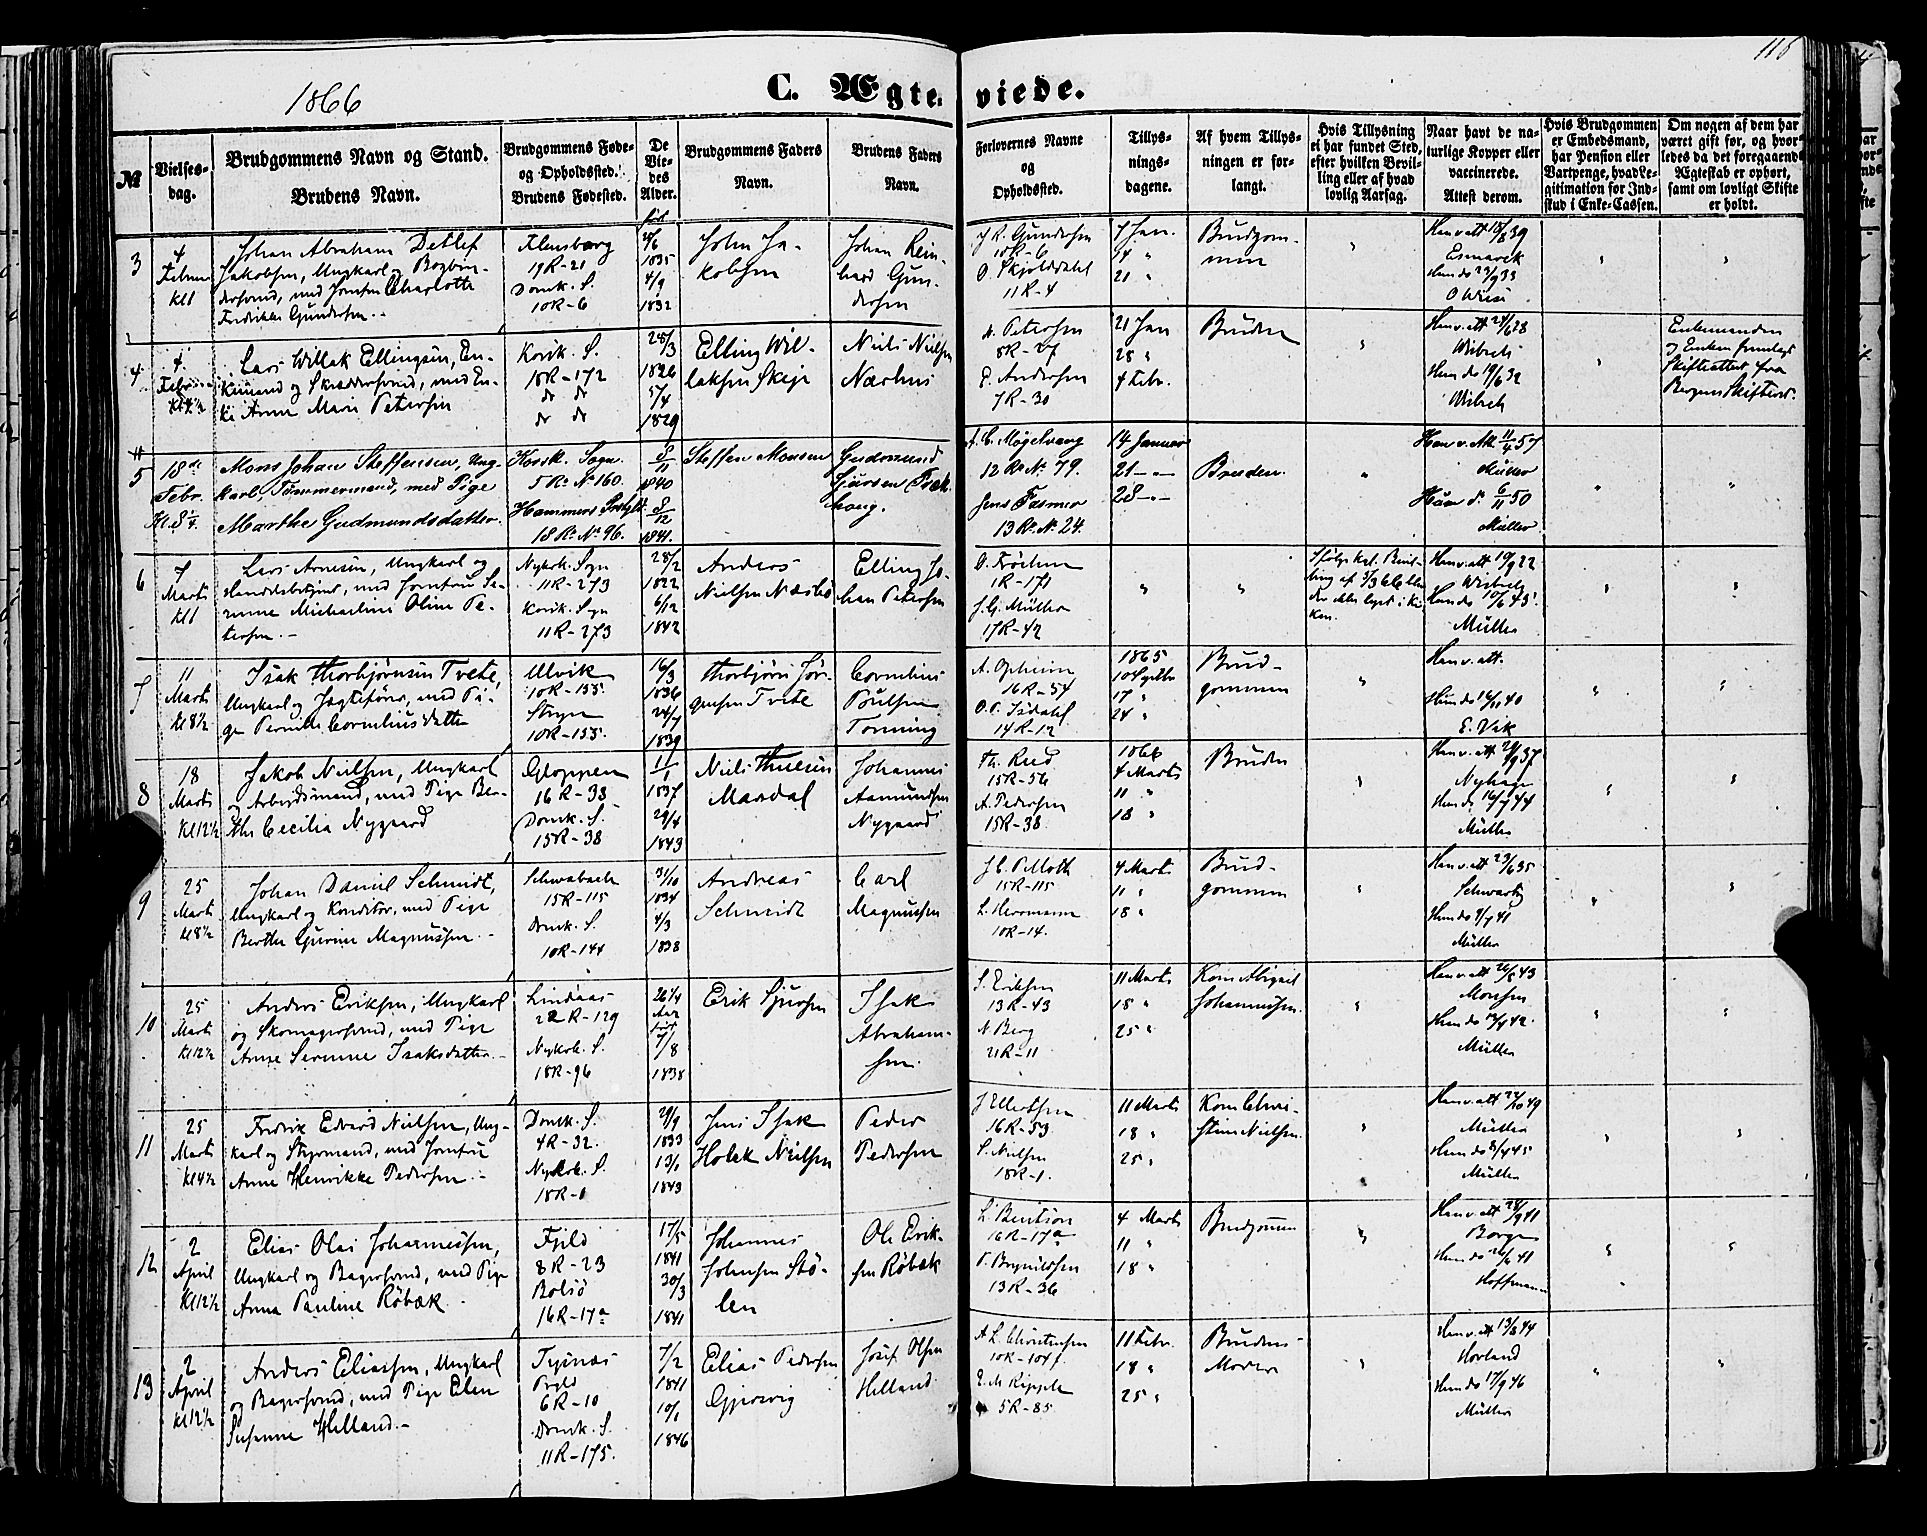 1866
C. Ægteviede.
116
№
Vielses-
dag.
Brudgommens Navn og Stand.
Brudens Navn.
Brudgommens Føde-
og Opholdssted.
Brudens Fødested.
De
Vie-
des
Alder.
Brudgommens Faders
Navn.
Brudens Faders
Navn.
Forlovernes Navne
og
Opholdssted.
Tillys-
nings-
dagene.
Af hvem Tillys-
ningen er for-
langt.
Hvis Tillysning
ei har fundet Sted,
efter hvilken Bevil-
ling eller af hvad
lovlig Aarsag.
Naar havt de na-
turlige Kopper eller
vaccinerede.
Attest derom.
Hvis Brudgommen
er Embedsmand,
har Pension eller
Vartpenge, hvad Le-
gitimation for Ind-
skud i Enke-Cassen.
Om nogen af dem har
været gift før, og hvor-
ledes da det foregaaende
Ægteskab er ophørt,
samt om lovligt Skifte
er holdt.
3
4
Februar
Kl 1
Johan Abraham Detlef
Jakobsen, Ungkarl og Bogbin-
dersvend, med Jomfru Charlotte
Fredrikke Gundersen.
Flensborg
19R-21
Domk. S.
10R-6
1835
4/9
1832
John Ja-
kobsen
Johan Rein-
hard Gun-
dersen
J R. Gundersen
10R-6
O. Skjoldahl
11R-4
7 Jan.
14 "
21 "
Brudgom-
men
Han v. att 18/8 39
Esmarck
Hun do 23/9 33
O Wiese
4
4
Februar
Lars Willak Ellingsen, En-
kemand og Skræddersvend, med En-
ke Anne Marie Petersen
Korsk. S.
18R-172
do do
do do
28/3
1826
5/4
1829
Elling Wil-
laksen Skeje
Niels Nielsen
Nærhus
A. Petersen
8R-27
P. Andersen
7R-30
21 Jan
28 "
4 Febr.
Bruden
Han v. att 24/6 28
Wisbech
Hun do 19/6 32
Wisbech
Enkemanden
og Enken fremlagt
Skifteattest fra
Bergens Skifteret.
5
18de
Febr.
Kl. 8 1/4.
Mons Johan Steffensen, Ung-
karl, Tømmermand, med Pige
Marthe Gudmundsdatter.
Korsk. Sogn
5 R. No 160.
Hammers Prstgld
18 R. No 96.
8/11
1840
8/12
1841.
Steffen Monsen
Gudmund
Sjursen Isek-
houg.
A. C. Møgelvang
12 R. No 79.
Jens Fasmer
13 R. No 24.
14 Januar
21 — —
28 — —
Bruden.
Han v. Att. 11/4 57
Müller
Hun d. 6/11 50
Müller
6
7
Marts
Kl 1
Lars Arnesen, Ungkarl og
Handelsbetjent, med Jomfru Se-
rinne Michaeline Oline Pe-
tersen.
Nykirk. Sogn
11R-273
Korsk. Sogn
11R-273
28/2
1822
6/12
1842
Anders
Nielsen Næsbø
Elling Jo-
han Petersen
1R-171
J. G. Müller
17R-42
Han v. att 19/9 22
Wisbech
Hun do 10/6 43
Müller
7
11
Marts
Kl 8 1/2
Isak Thorbjørnsen Tvete,
Ungkarl og Jagtefører, med Pi-
ge Pernille Corneliusdatter
Ulvik
10R-155
Stryn
10R-155.
16/3
1836
24/7
1839
Thorbjørn Jør-
gensen Tvete
Cornelius
Poulsen
Tonning
A. Opheim
16R-54
O. O. Isdahl
14R-12
1865
17 "
24 "
Brud-
gommen
Han v. att.
E. Vik
8
18
Marts
Kl 12 1/2
Jakob Nielsen, Ungkarl
og Arbeidsmand, med Pige Ber-
the Cecilia Nygaard
Gloppen
16 R-33
Domk. S.
15R-38
11/1
1837
29/4
1843
Niels Thuesen
Mardal
Johannes
Aamundsen
Nygaard
Th. Reed
15R-56
A. Pedersen
15R-38
1866
4 Marts
11 "
18 "
Bruden
Müller
9
25
Marts
Kl 8 1/2
Johan Daniel Schmidt,
Ungkarl og Konditor, med Pige
Berthe Gurine Magnussen.
Schwabach
15R-115
Domk. S.
10R-144
31/10
1834
4/3
1838
Andreas
Schmidt
Carl
Magnussen
15R-115
L. Herrmann
10R-14.
4 Marts
11 "
18 "
Brud-
gommen
Han v. att 23/6 35
Schwartz
Müller
10
25
Marts
Kl 12 1/2
Anders Eriksen, Ungkarl
og Skomagersvend, med Pige
Anne Serinne Isaksdatter.
Lindaas
22R-129
Nykirk. S.
18R-96
26 1/4
Aar
født
7/8
1838
Erik Sjursen
Isak
Abraham-
sen
S. Eriksen
13R-43
N. Berg
21R-11
11 Marts
18 "
25 "
Kone Abigael
Johannessen.
Monsen
Müller
11
25
Marts
Kl 4 1/2
Fredrik Edvard Nielsen, Ung-
karl og Styrmand, med Jomfru
Anne Henrikke Pedersen.
Domk. S.
4R-32.
Nykirk. S.
18R-1
29/9
1833
13/1
1843
Jens Isak
Holck Nielsen
Peder
Pedersen
J Ellertsen
16R-53
S. Nielsen
18R-1.
11 Marts
18 "
25 "
Kone Chri-
stine Nielsen.
Han v. att 22/10 49
Müller
Müller
12
2
April
Kl 12 1/2
Elias Olai Johannessen,
Ungkarl og Bagersvend, med Pige
Anna Pauline Røbæk
Fjeld
8R-23
Bolsø
16R-17a
17/5
1841
30/3
1841
Johannes
Johnsen Stø-
len
Ole Erik-
sen Røbæk
L. Bentson
16R-17a
P. Brynildsen
13R-36
4 Marts
11 "
18 "
Brudgommen
Borge
Hoffmann
13
2
April
Kl 12 1/2
Anders Eliassen, Ungkarl
og Bagersvend, med Pige Elen
Susanne Helland.
Tysnæs
Prgld
6R-10
Domk. S.
11R-175.
7/2
1841
10/1
1846
Elias Pedersen
Gjersvig
Josef Olsen
Helland
A. L. Christensen
10R-104f.
5R-85
11 Febr.
18 "
25 "
Brudens
Moder
Han v. att 13/8 44
Hovland
Hun do 17/9 46
Müller